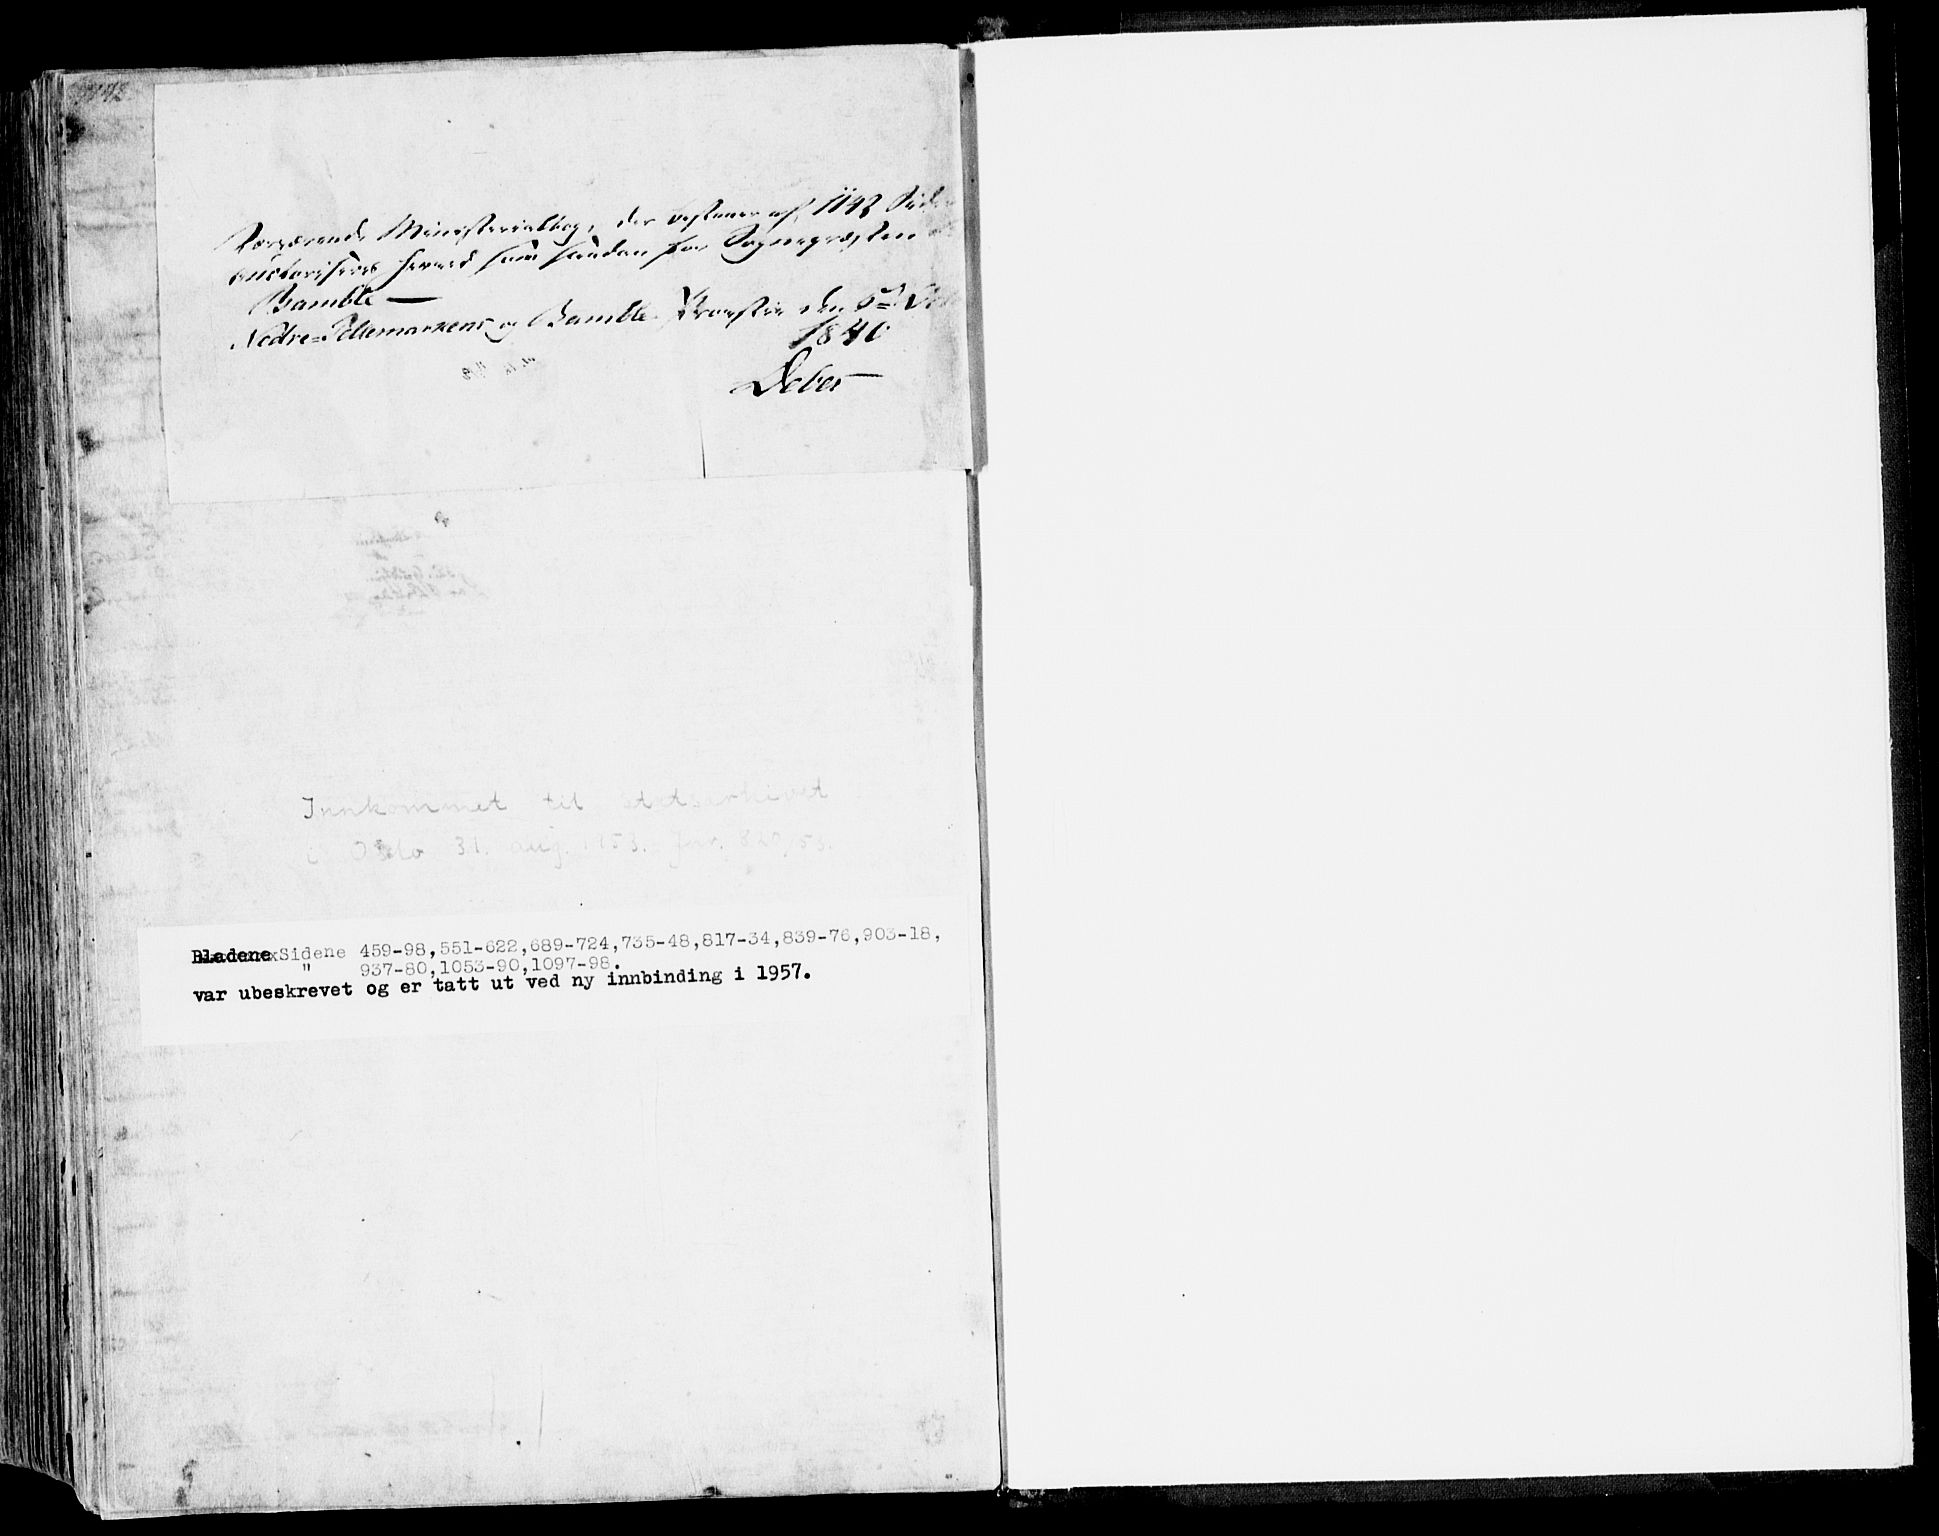 1142
Nærværende Ministerialbog, der bestaaer af 1142 Sider
auctoriseres herved som saadan for Sognepræsten
Bamble —
Nedre-Tellemarkens og Bamble Provstie den 6te
1840
Deber
Innkommet til statsarkivet
i Oslo 31. aug. 1953. Jnr. 820/53.
Bladene Sidene 459-98,551-622,689-724,735-48,817-34,839-76,903-18,
" 937-80,1053-90,1097-98.
var ubeskrevet og er tatt ut ved ny innbinding i 1957.